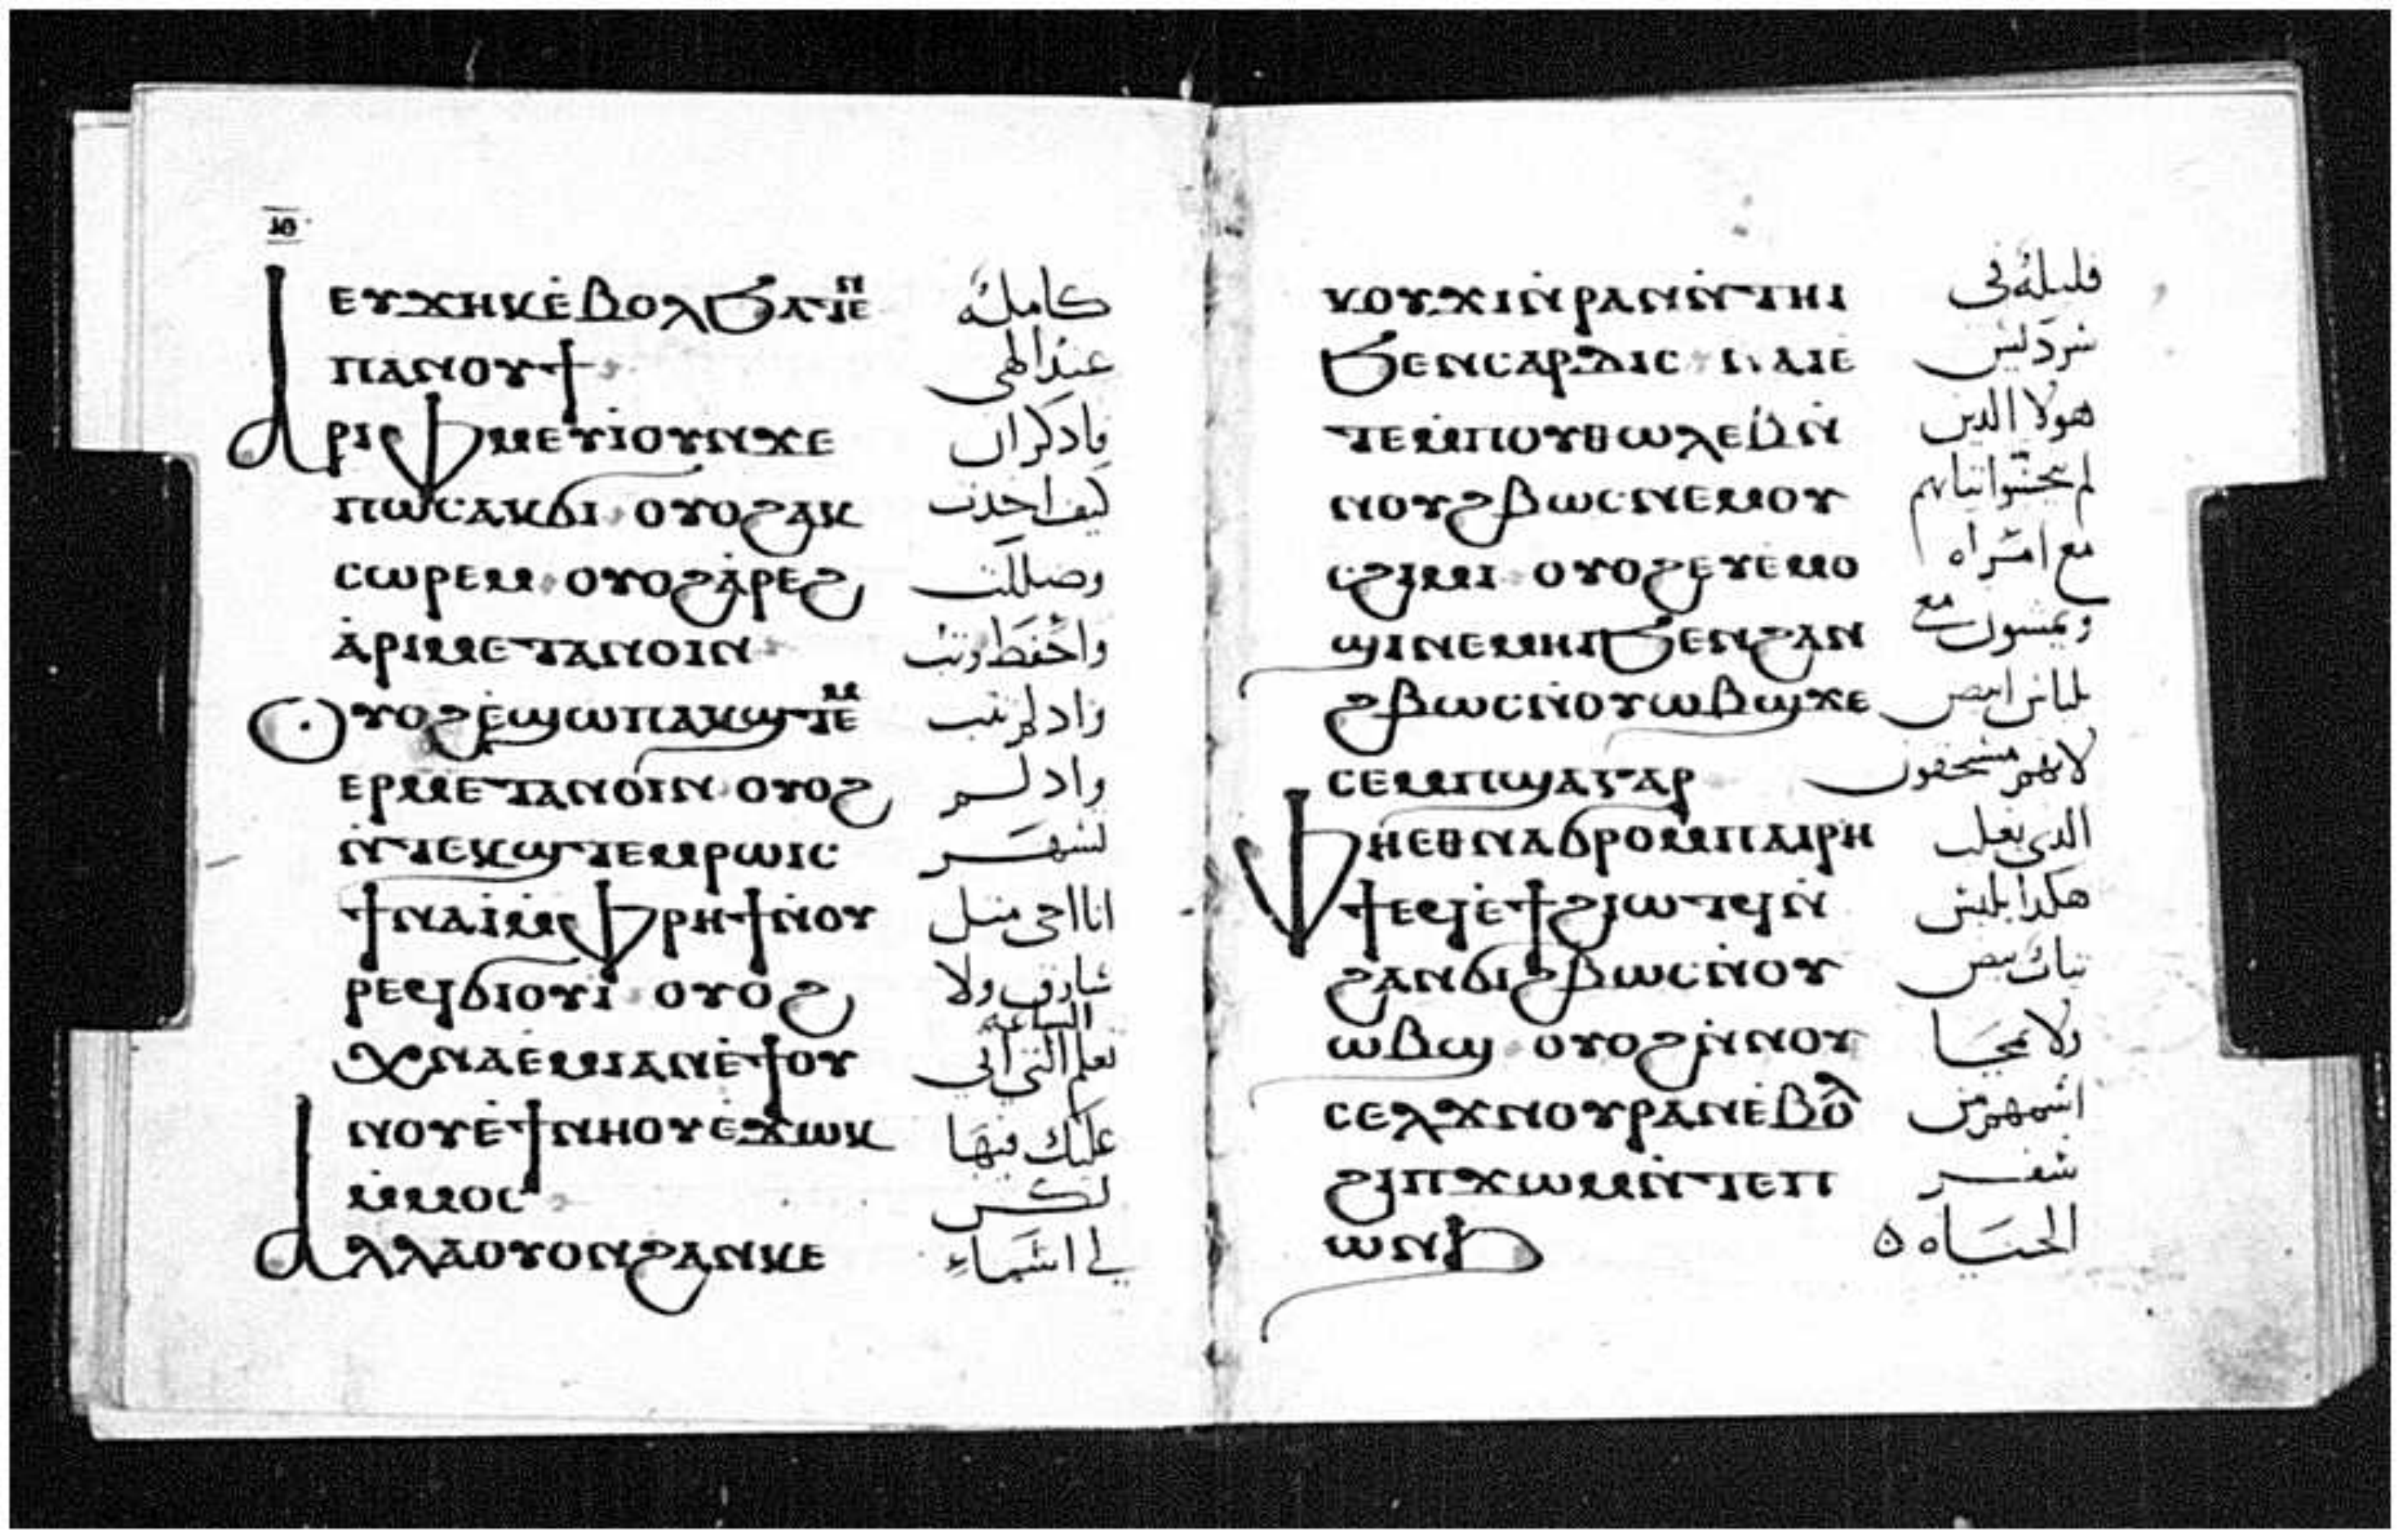 ⲓⲑ
ⲉⲩϫⲏⲕⲉ̇ⲃⲟⲗϧⲁⲧⲉⲛ
كامله
ⲡⲁⲛⲟⲩϯ
عند الهى
ⲁⲣⲓⲫⲙⲉⲩⲓ̇ⲟⲩⲛϫⲉ
فاذكر ان
ⲡⲱⲥⲁⲕϭⲓ ⲟⲩⲟϩⲁⲕ
كيف اخذت
ⲥⲱⲣⲉⲙ ⲟⲩⲟϩⲁ̇ⲣⲉϩ
وضللت
ⲁ̇ⲣⲓⲙⲉⲧⲁⲛⲟⲓⲛ
واحفظ وتب
ⲟⲩⲟϩⲉ̇ϣⲱⲡⲁⲕϣⲧⲉⲙ
واد لم تتب
ⲉⲣⲙⲉⲧⲁⲛⲟⲓⲛ ⲟⲩⲟϩ
واد لم
ⲛ̇ⲧⲉⲕϣⲧⲉⲙⲣⲱⲓⲥ
تسهر
ϯⲛⲁⲓ̇ⲙ̇ⲫⲣⲏϯⲛ̇ⲟⲩ
انا اجى مثل
ⲣⲉϥϭⲓⲟⲩⲓ̇ ⲟⲩⲟϩ
سارق ولا
الساعه
ⲭⲛⲁⲉ̇ⲙⲓⲁⲛⲉ̇ϯⲟⲩ
تعلم التى اتى
ⲛⲟⲩⲉ̇ϯⲛⲏⲟⲩⲉ̇ϫⲱⲕ
عليك فيها
ⲙ̇ⲙⲟⲥ
لكن
ⲁⲗⲗⲁⲟⲩⲟⲛϩⲁⲛⲕⲉ
لى اسماء
ⲕⲟⲩϫⲓⲛ̇ⲣⲁⲛⲛ̇ⲧⲏⲓ
قليله فى
ϧⲉⲛⲥⲁⲣⲇⲓⲥ ⲛⲁⲓⲉ̇
سرديس
ⲧⲉⲙ̇ⲡⲟⲩⲑⲱⲗⲉⲃⲛ̇
هولا الدين
ⲛⲟⲩϩⲃⲱⲥⲛⲉⲙⲟⲩ
لم ينجسوا ثيابهم
ⲥϩⲓⲙⲓ ⲟⲩⲟϩⲉⲩⲉ̇ⲙⲟ
مع امراه
ϣⲓⲛⲉⲙⲏⲓϧⲉⲛϩⲁⲛ
ويمشون مع
ϩⲃⲱⲥⲛ̇ⲟⲩⲱⲃϣϫⲉ
بلباس ابيض
ⲥⲉⲙ̇ⲡϣⲁⲅⲁⲣ
لانهم مستحقون
ⲫⲏⲉⲑⲛⲁϭⲣⲟⲙ̇ⲡⲁⲓⲣⲏ
الدى يغلب
ϯⲉϥⲉ̇ϯϩⲓⲱⲧϥⲛ̇
هكدا يلبس
ϩⲁⲛϭⲓϩⲃⲱⲥⲛ̇ⲟⲩ
ثياب بيض
ⲱⲃϣ ⲟⲩⲟϩⲛ̇ⲛⲟⲩ
ولا يمحا
ⲥⲉⲗϫⲛⲟⲩⲣⲁⲛⲉ̇ⲃⲟⲗ
اسمهم من
ϩⲓⲡϫⲱⲙⲛ̇ⲧⲉⲡ
سفر
ⲱⲛϧ
الحياه ه